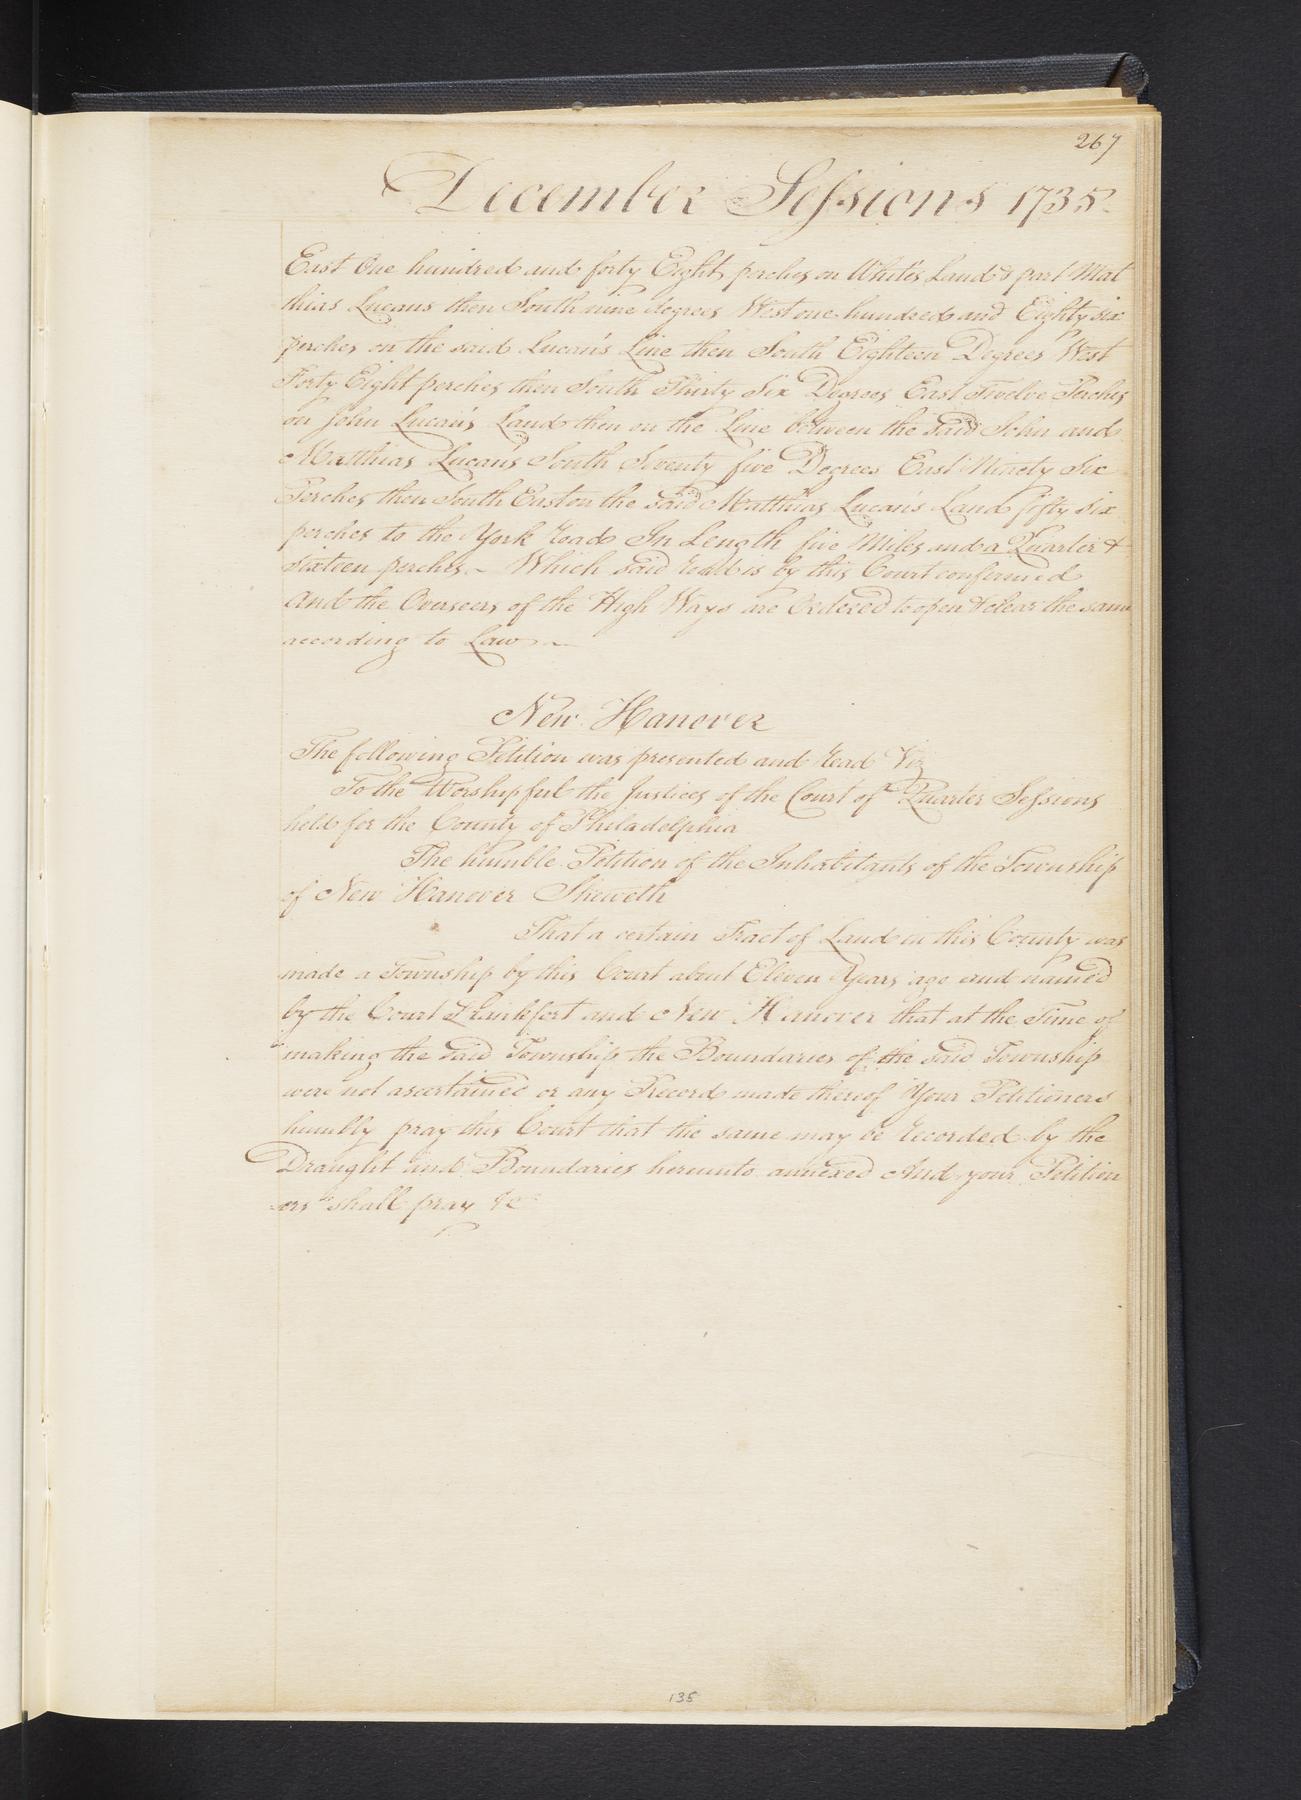 267
December Sessions 1735.
East One hundred and forty Eight perches on White's Land & part Mat
thias Lucans then South nine degrees West one hundred and Eighty six
perches on the said Lucan's Line then South Eighteen Degrees West
Forty Eight perches then South Thirty Six Degrees East Twelve Perches
on John Lucan's Land then on the Line between the said John and
Matthias Lucan's South Seventy five Degrees East Ninety Six
Perches then South East on the said Matthias Lucan's Land fifty six
perches to the York Road In Length five Miles and a Quarter &
sixteen perches. Which said Road is by this Court confirmed
And the Overseers of the High Ways are Ordered to open & clear the same
according to Law
New Hanover
The following Petition was presented and Read Viz
To the Worshipful the Justices of the Court of Quarter Sessions
held for the County of Philadelphia
The humble Petition of the Inhabitants of the Township
of New Hanover Sheweth
That a certain Tract of Land in this County was
made a Township by this Court about Eleven Years ago and named
by the Court Frankfort and New Hanover that at the Time of
making the said Township the Boundaries of the said Township
were not ascertained or any Record made thereof Your Petitioners
humbly pray this Court that the same may be Recorded by the
Draught and Boundaries hereunto annexed And your Petition
ers shall pray &c
135